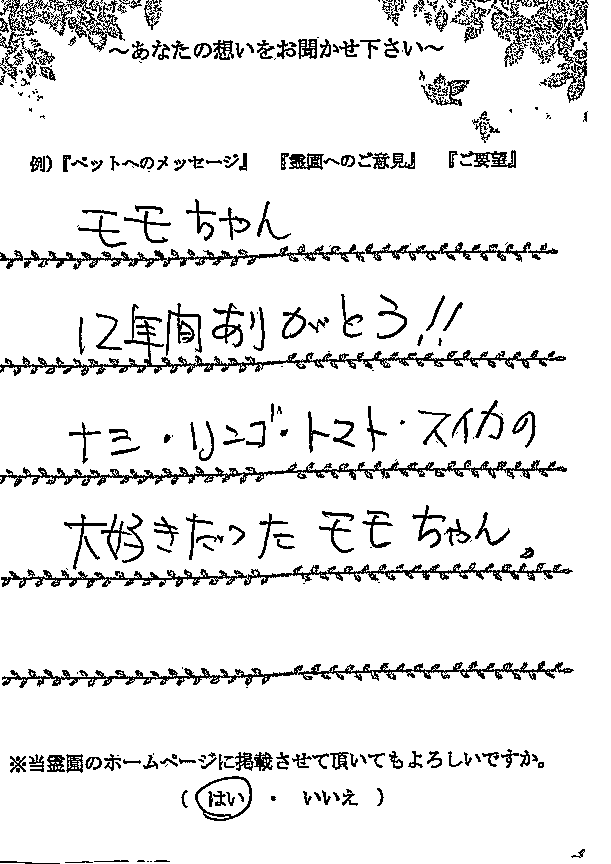 ～あなたの想いをお聞かせ下さい～
例）『ペットへのメッセージ』　『霊園へのご意見』　『ご要望』
モモちゃん
12年間ありがとう!!
ナミ・リンゴ・トマト・スイカの
大好きだったモモちゃん。
※当霊園のホームページに掲載させて頂いてもよろしいですか。
（ はい ・ いいえ ）